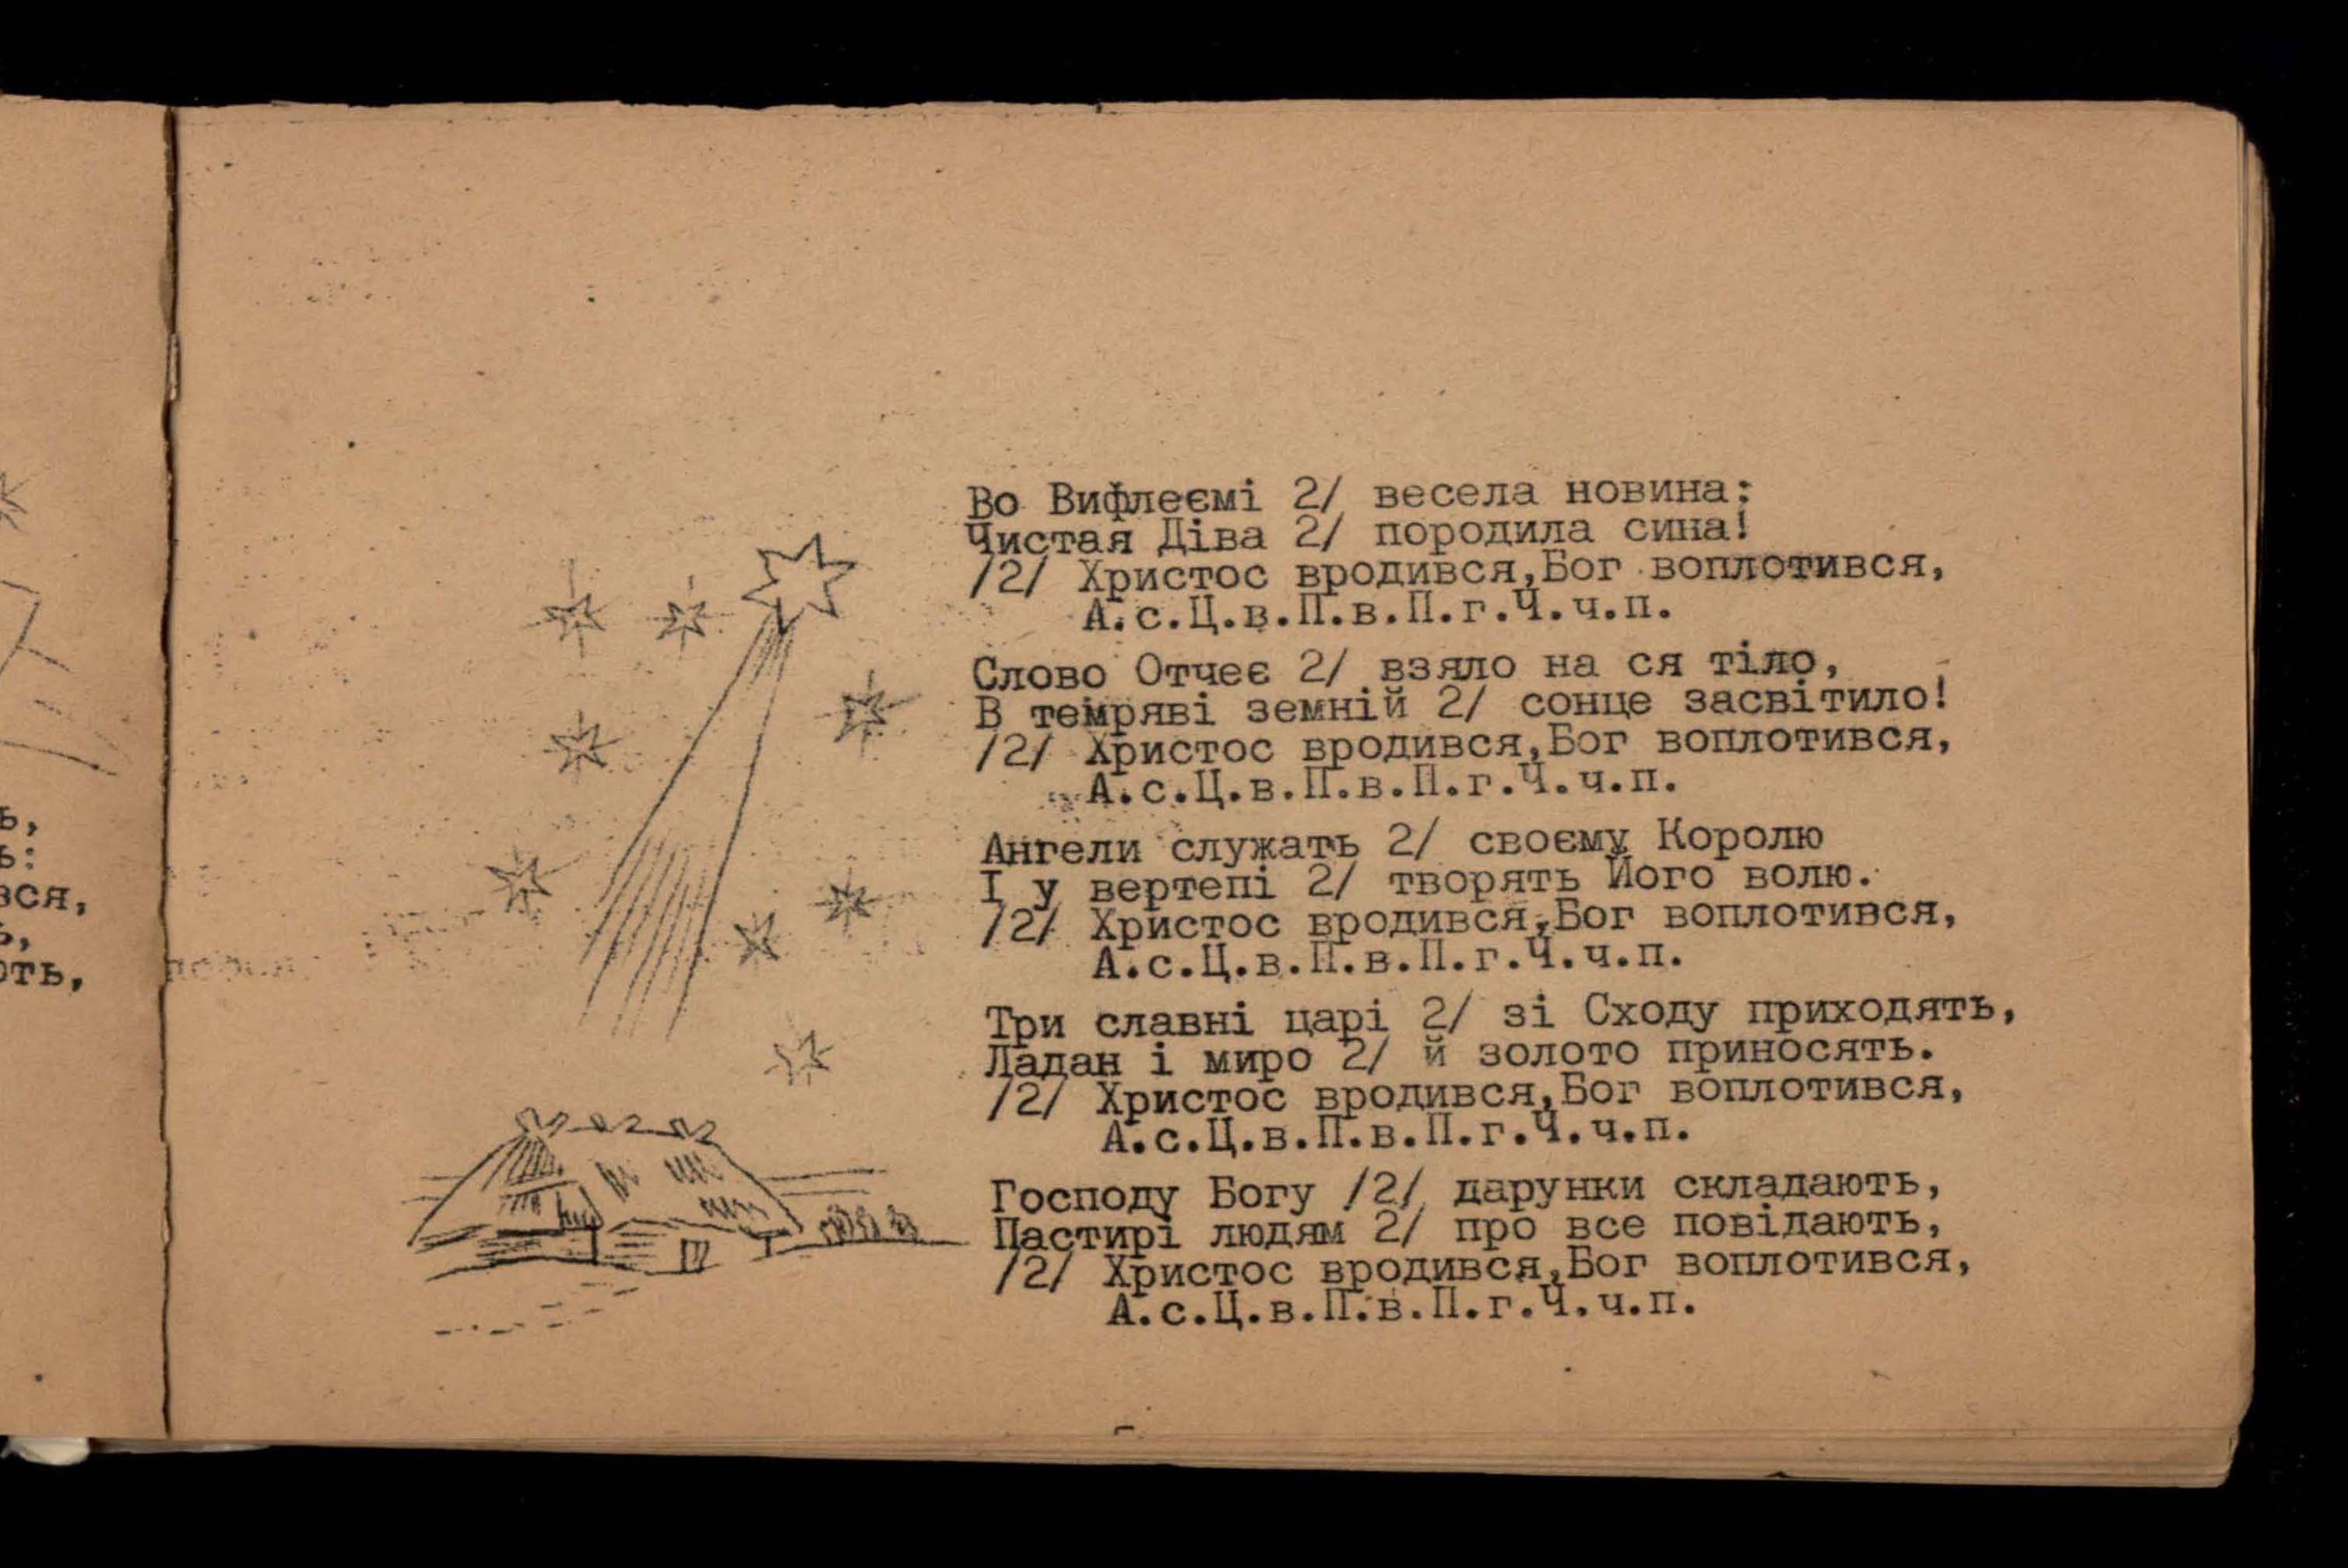 ь,
ь:
вся,
ь,
ють,
Во Вифлеємі 2/ весела новина:
Чистая Діва 2/ породила сина!
/2/ Христос вродився,Бог воплотився,
А.с.Ц.в.П.в.П.г.Ч.ч.п.
Слово Отчеє 2/ взяло на ся тіло,
В темряві земній 2/ сонце засвітило!
/2/ Христос вродився,Бог воплотився,
А.с.Ц.в.П.в.П.г.Ч.ч.п.
Ангели служать 2/ своєму Королю
І у вертепі 2/ творять Його волю.
/2/ Христос вродився,Бог воплотився,
А.с.Ц.в.П.в.П.г.Ч.ч.п.
Три славні царі 2/ зі Сходу приходять,
Ладан і миро 2/ й золото приносять.
/2/ Христос вродився,Бог воплотився,
А.с.Ц.в.П.в.П.г.Ч.ч.п.
Господу Богу /2/ дарунки складають,
Пастирі людям 2/ про все повідають,
/2/ Христос вродився,Бог воплотився,
А.с.Ц.в.П.в.П.г.Ч.ч.п.